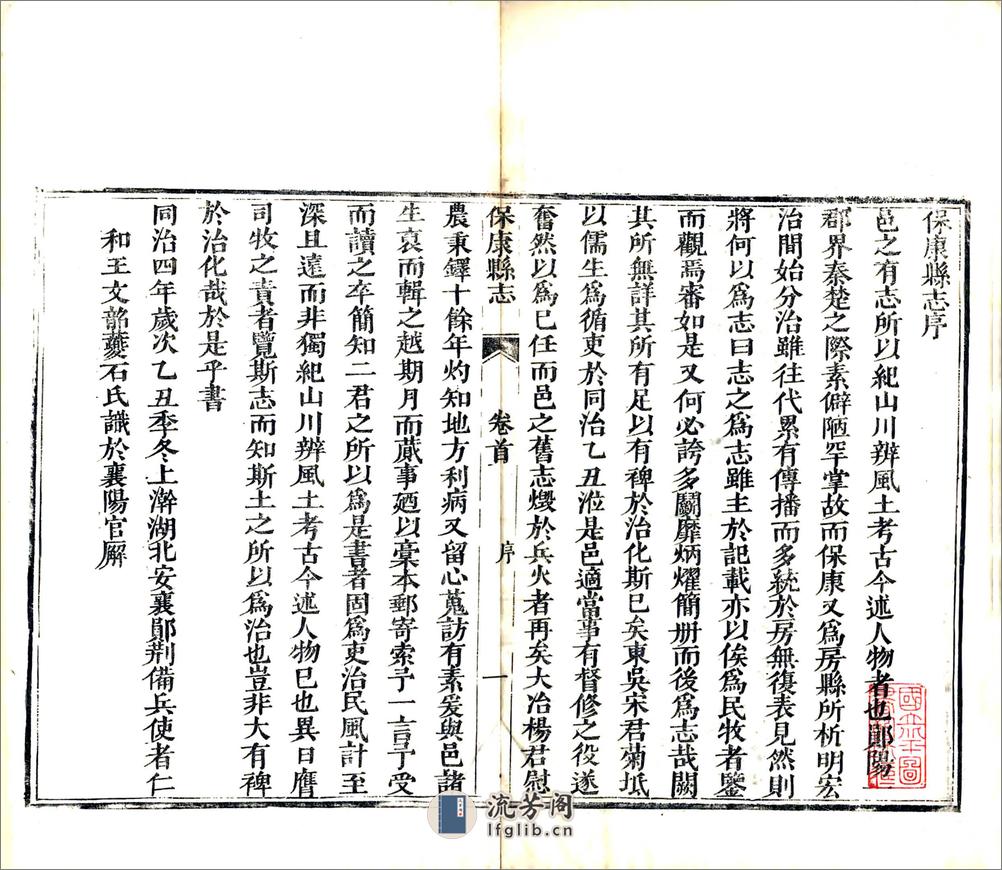 保康縣志序
邑之有志所以紀山川辨風土考古今述人物者也鄖陽一
郡界秦楚之際素僻陋罕掌故而保康又爲房縣所析明宏
治閒始分治雖往代累有傳播而多統於房無復表見然則
將何以爲志曰志之爲志雖主於記載亦以俟爲民牧者鑒
而觀焉審如是又何必誇多鬭靡炳燿簡册而後爲志哉闕
其所無詳其所有足以有裨於治化斯已矣東吳宋君菊坻
以儒生爲循吏於同治乙丑涖是邑適當事有督修之役遂
奮然以爲已任而邑之舊志燬於兵火者再矣大冶楊君慰
保康縣志
卷首
序
一
農秉鐸十餘年灼知地方利病又留心蒐訪有素爰與邑諸
生裒而輯之越期月而蕆事廼以稾本郵寄索予一言予受
而讀之卒簡知二君之所以爲是書者固爲吏治民風計至
深且遠而非獨紀山川辨風土考古今述人物已也異日膺
司牧之責者覽斯志而知斯土之所以爲治也豈非大有裨
於治化哉於是乎書
同治四年歲次乙丑季冬上澣湖北安襄鄖荆備兵使者仁
和王文韶夔石氏識於襄陽官廨
流芳阁
lfglib.cn